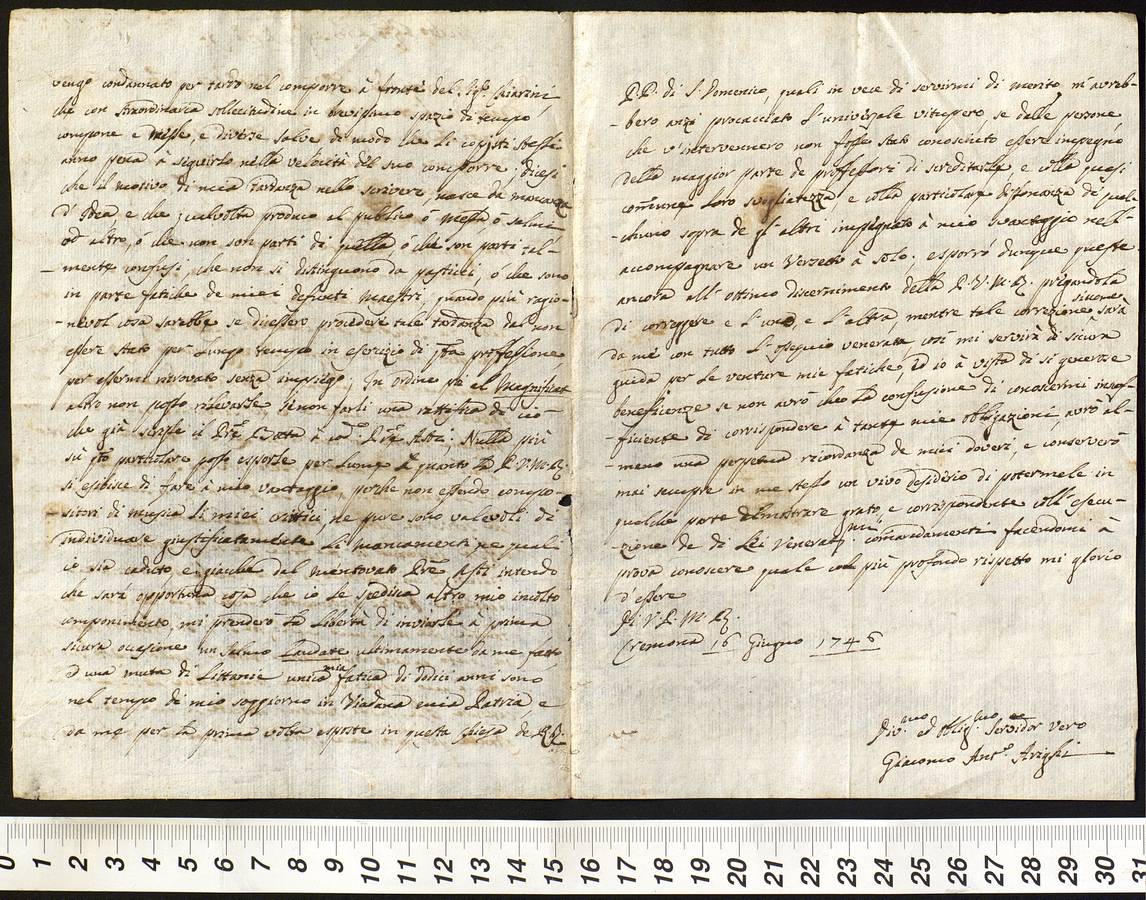 vengo condannato per tardo nel comporre à fronte del Sigr. Chiarini
che con straordinaria sollecitudine in brevissimo spazio di tempo
compone e messe, e diverse salve di modo che li copisti stessi
anno pena à seguirlo nella velocità del suo comporre; diesi
che il motivo di mia tardanza nello scrivere, nasce da mancanza
d'Idea, e che qualvolta produco al publico ó messa, ó salmi
od altro, ó che non son parti di quella ó che son parti tal-
mente confusi, che non si distinguono da pasticci, ó che sono
in parte fatiche de miei defonti Maestri, quando più ragio-
nevol cosa sarebbe se dicessero procedere tale tardanza dal non
essere stato per lungo tempo in esercizio di professione
per essermi ritrovato senza impiego; In ordine poi al Magnificat
altro non posso rilevarle senon farli una rattifica di ciò
che già scrisse il Pre. à Pre. Asti; Nulla più
sù particolare posso esporle per lume à quanto la P.V.M.R.
si esibisce di fare à mio vantaggio, poiche non essendo compo-
sitori di musica li miei critici ne pure sono valevoli di
individuare giustificatamente li mancamenti ne quali
io sia caduto e giache dal mentovato Pre. Asti intendo
che sarà opportuna cosa che io le spedisca altro mio incolto
componimento, mi prenderò la libertà di inviarle à prima
sicura occasione un salmo Laudate ultimamente da me fatto
e una muta di Littanie unica mia fatica di dodici anni sono
nel tempo di mio soggiorno in Viadana mia Patria e
da me per la prima volta esposte in questa chiesa de RR.
P.P. di S. Domenico, quali in vece di servirmi di merito m'avreb-
bero anzi procacciato l'universale vitupero, se dalle persone
che v'intervennero non fosse stato conosciuto essere impegno
della maggior parte de professori di screditarle, e colla quasi
comune loro svogliatezza e colla particolare dissonanza di qual-
chuno sopra de gl'altri impegnato à mio svantaggio nell'
accompagnare un Verzetto à solo. esporrò dunque queste
ancora all'ottimo discernimento della P.V.M.R. pregandola
di correggere e l'uno, e l'altra, mentre tale correzione siccome sarà
da me con tutto l'ossequio venerata, così mi servirà di sicura
guida per le venture mie fatiche, ed io à vista di sì generose
beneficienze se non avrò che la confusione di conoscermi insuf-
ficiente di corrispondere à tante mie obbligazioni, avrò al-
meno una perpetua ricordanza de miei doveri, e conserverò
mai sempre in me stesso un vivo desiderio di potermele in
qualche parte dimostrare grato, e corrispondente coll'esecu-
zione de di Lei Veneratmi. comandamenti facendomi à
prova conoscere quale con più profondo rispetto mi glorio
d'essere
Di V.P.M.R.
Cremona 16 Giugno 1746
Divmo. ed obligmo. Servidor vero
Giacomo Anto. Arighi